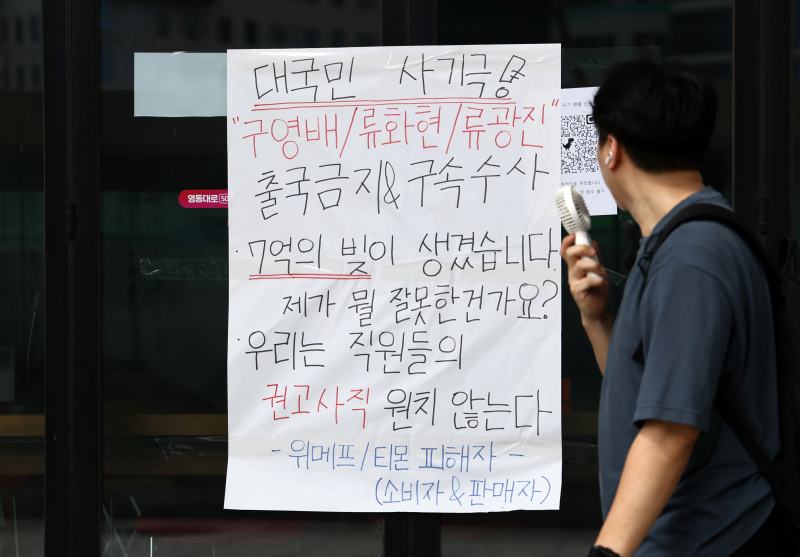 대국민 사기극
"구영배/류화현/류광진"
출국금지&구속수사
· 7억의 빚이 생겼습니다.
제가 뭘 잘못한건가요?
· 우리는 직원들의
권고사직 원치 않는다
- 위메프/티몬 피해자 -
(소비자&판매자)
영동대로